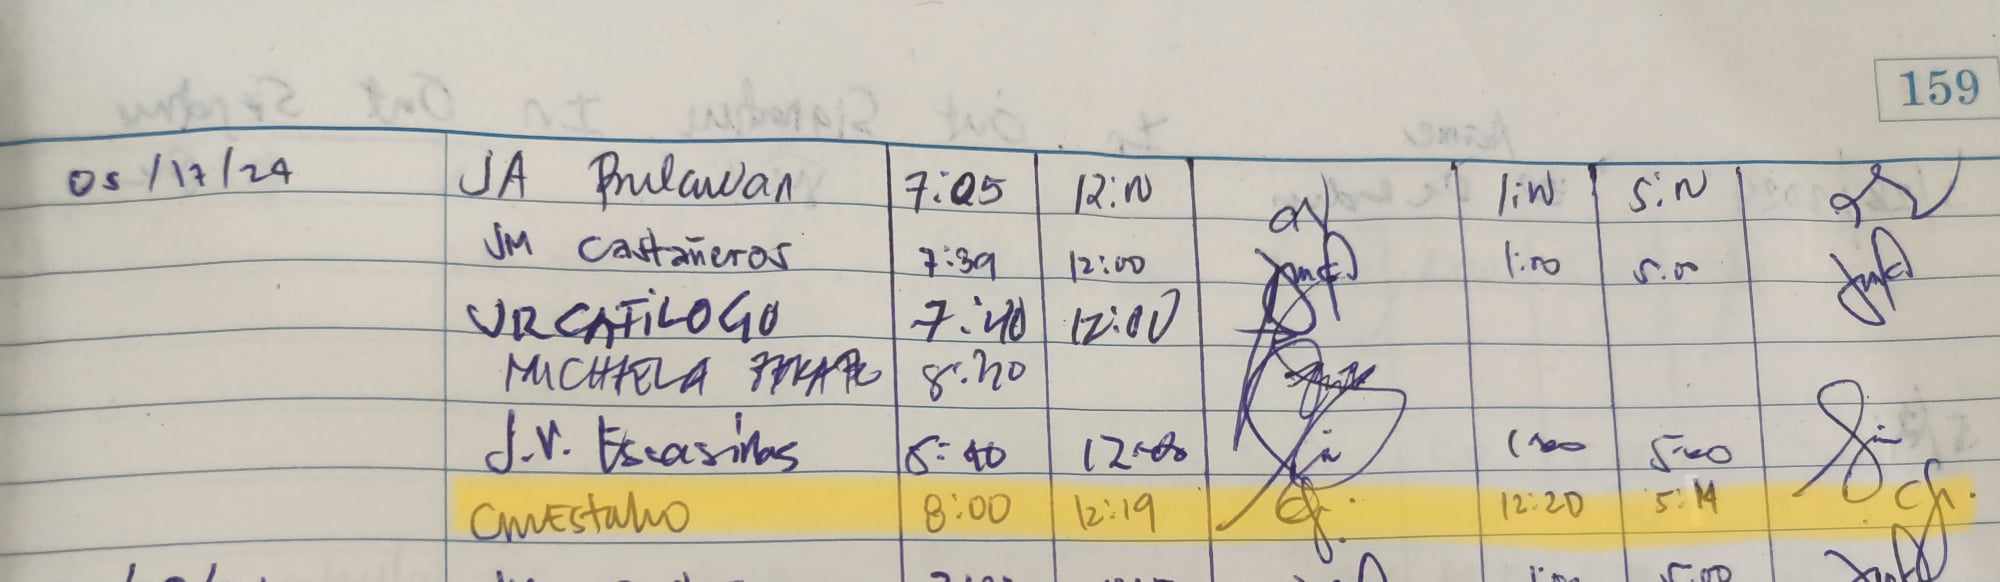 159
05/17/24 JA Bulawan 7:05 12:N 1:N 5:N
JM Castañeros 7:39 12:00 1:00 5:00
JR CATILOGO 7:40 12:00
MICHAELA 8:20
J.V. Escasinas 8:40 12:00 1:00 5:00
CMEstaño 8:00 12:19 12:20 5:14